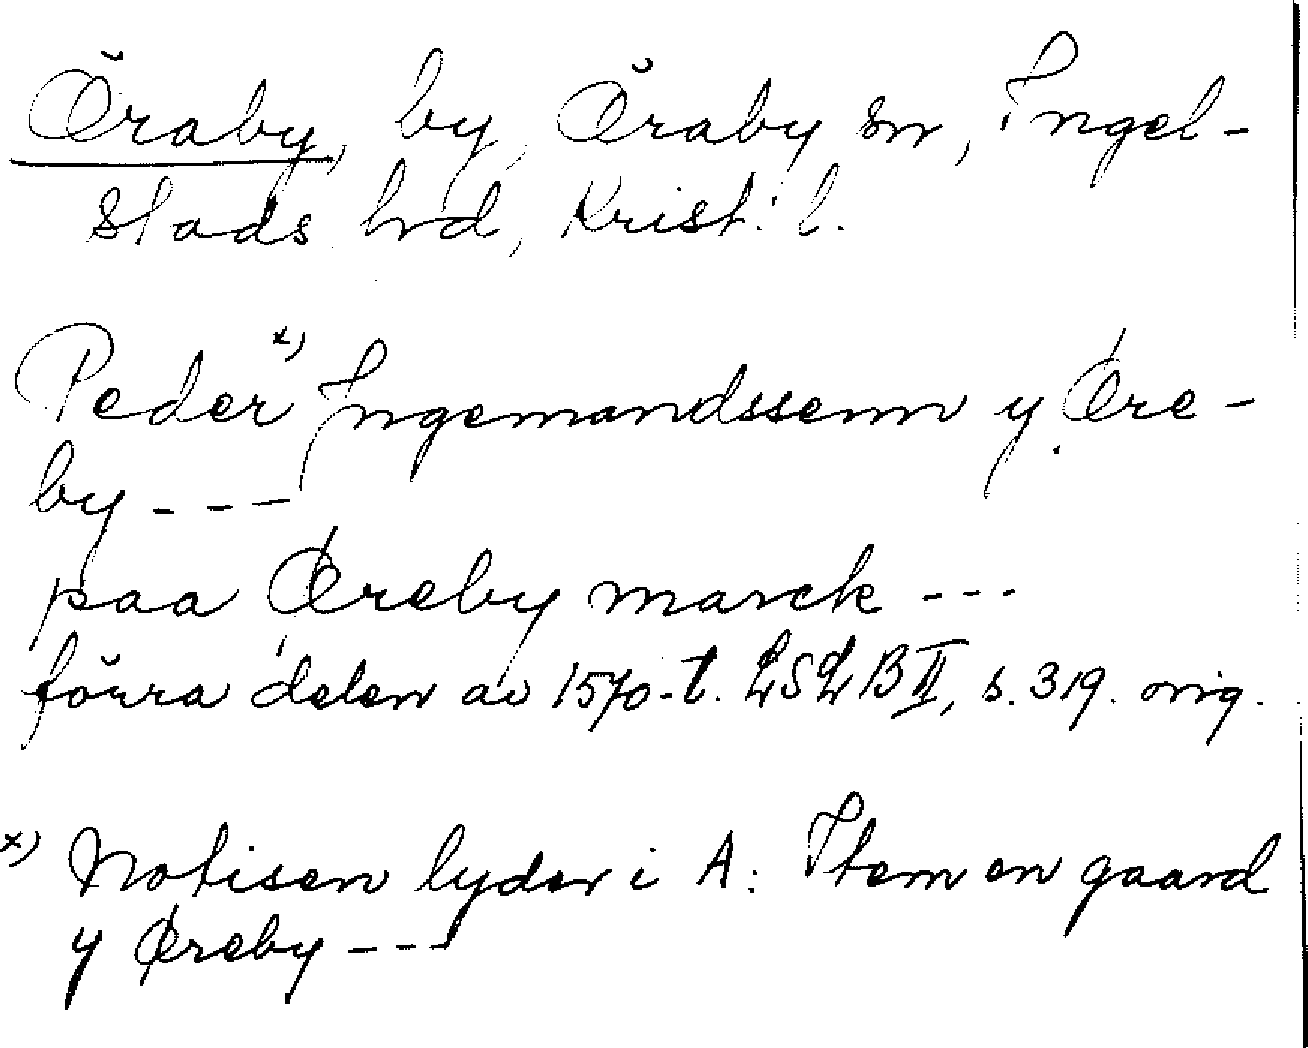 Öraby, by, Öraby sn, Ingel-
stads hrd, Krist. l.
Peder x) Jngemandssenn y Øre-
by ---
paa Øreby marck ---
förra delen av 1570-t. LSLB II, s. 319. orig.
x) Notisen lyder i A: Jtem en gaard
y Øreby ---